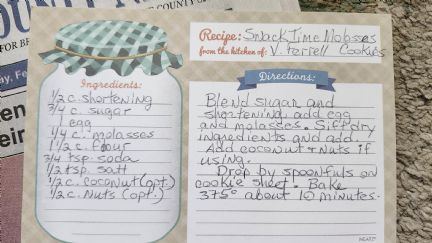 COUNTY OF
Recipe: SnackTime Molasses
from the kitchen of: V. Terrell Cookies
Ingredients:
1/2 c. shortening
3/4 c. sugar
1 egg
1/4 c. molasses
1 1/2 c. flour
3/4 tsp. soda
1/2 tsp. salt
1/2 c. coconut (opt.)
1/2 c. Nuts (opt.)
Directions:
Blend sugar and
shortening add egg
and molasses. Sift dry
ingredients and add
Add coconut & Nuts if
using.
Drop by spoonfuls on
cookie sheet. Bake
375° about 10 minutes.